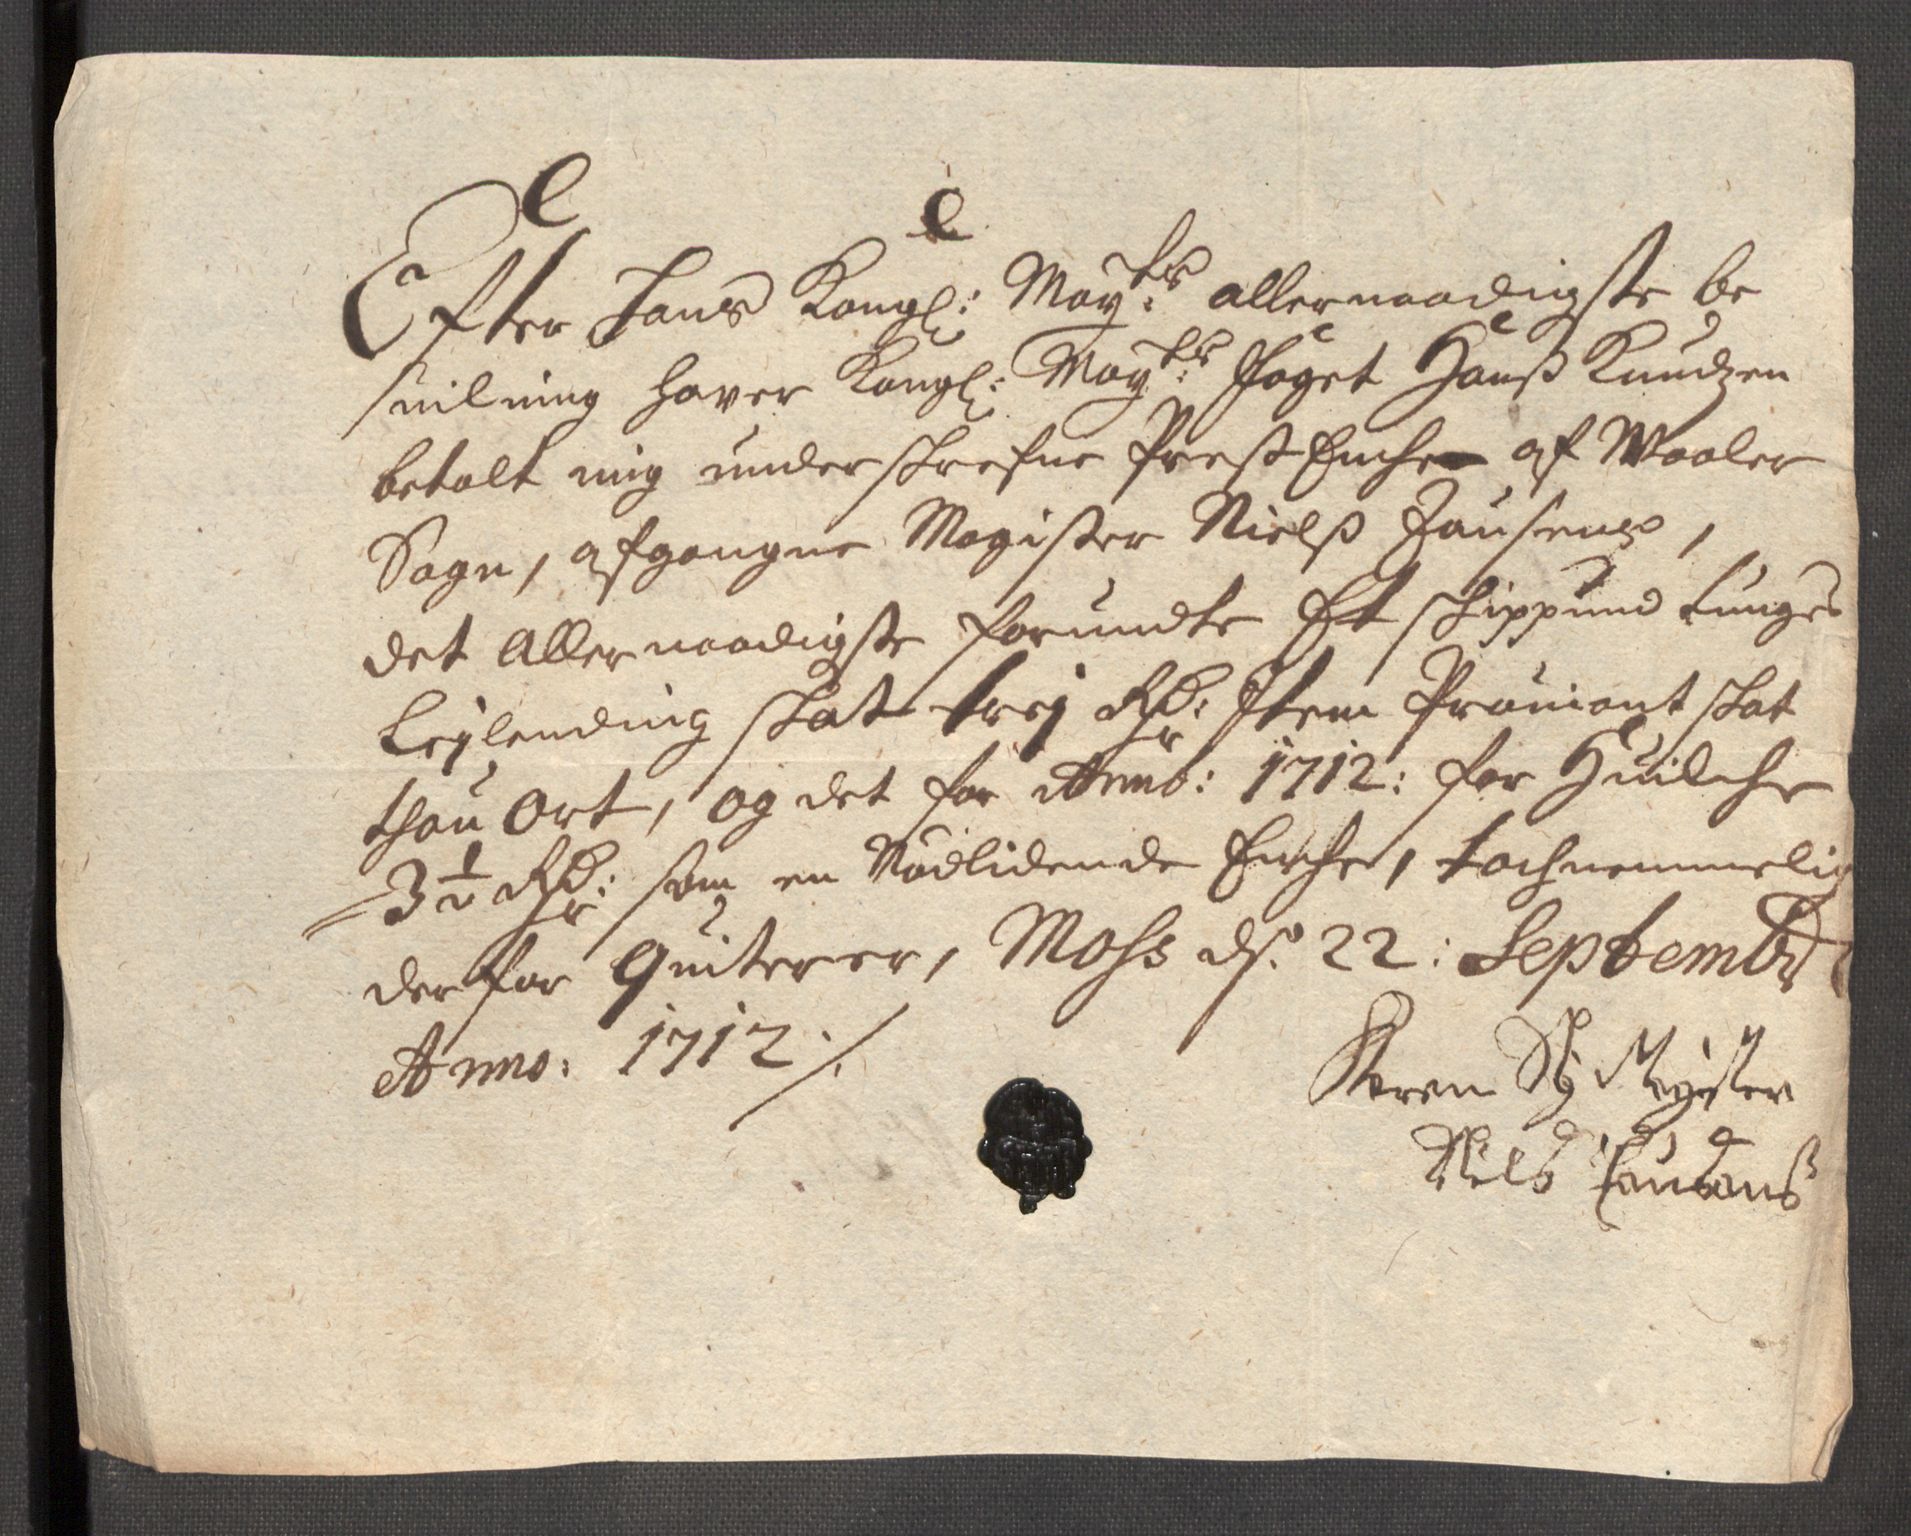 Efter Hans Kongl: May:ts allernaadigste be
vilning haver Kongl: May:ts foget Hanß Knudzen
betalt mig underskrefne Prest Enche af Waaler
Sogn, afgangne Magister Nielß Hansens,
det Allernaadigste forundte Et schippund tunges
Leylending skat trej Rdr: Item Proviant skat
thou Ort, og det for Anno: 1712: for Huilche
3½ Rdr: som en Nødlidende Enche, tachnemmelig
derfor Quiterer, Moss ds: 22: Septembr
Anno: 1712 ./.
Karen Sl Magister
Niels Hansens